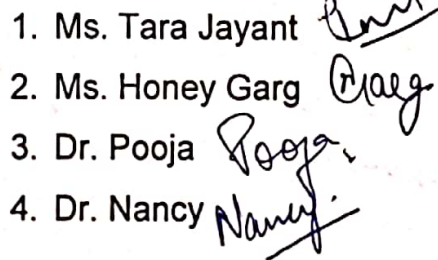 1. Ms. Tara Jayant
2. Ms. Honey Garg Garg
3. Dr. Pooja Pooja
4. Dr. Nancy Nancy